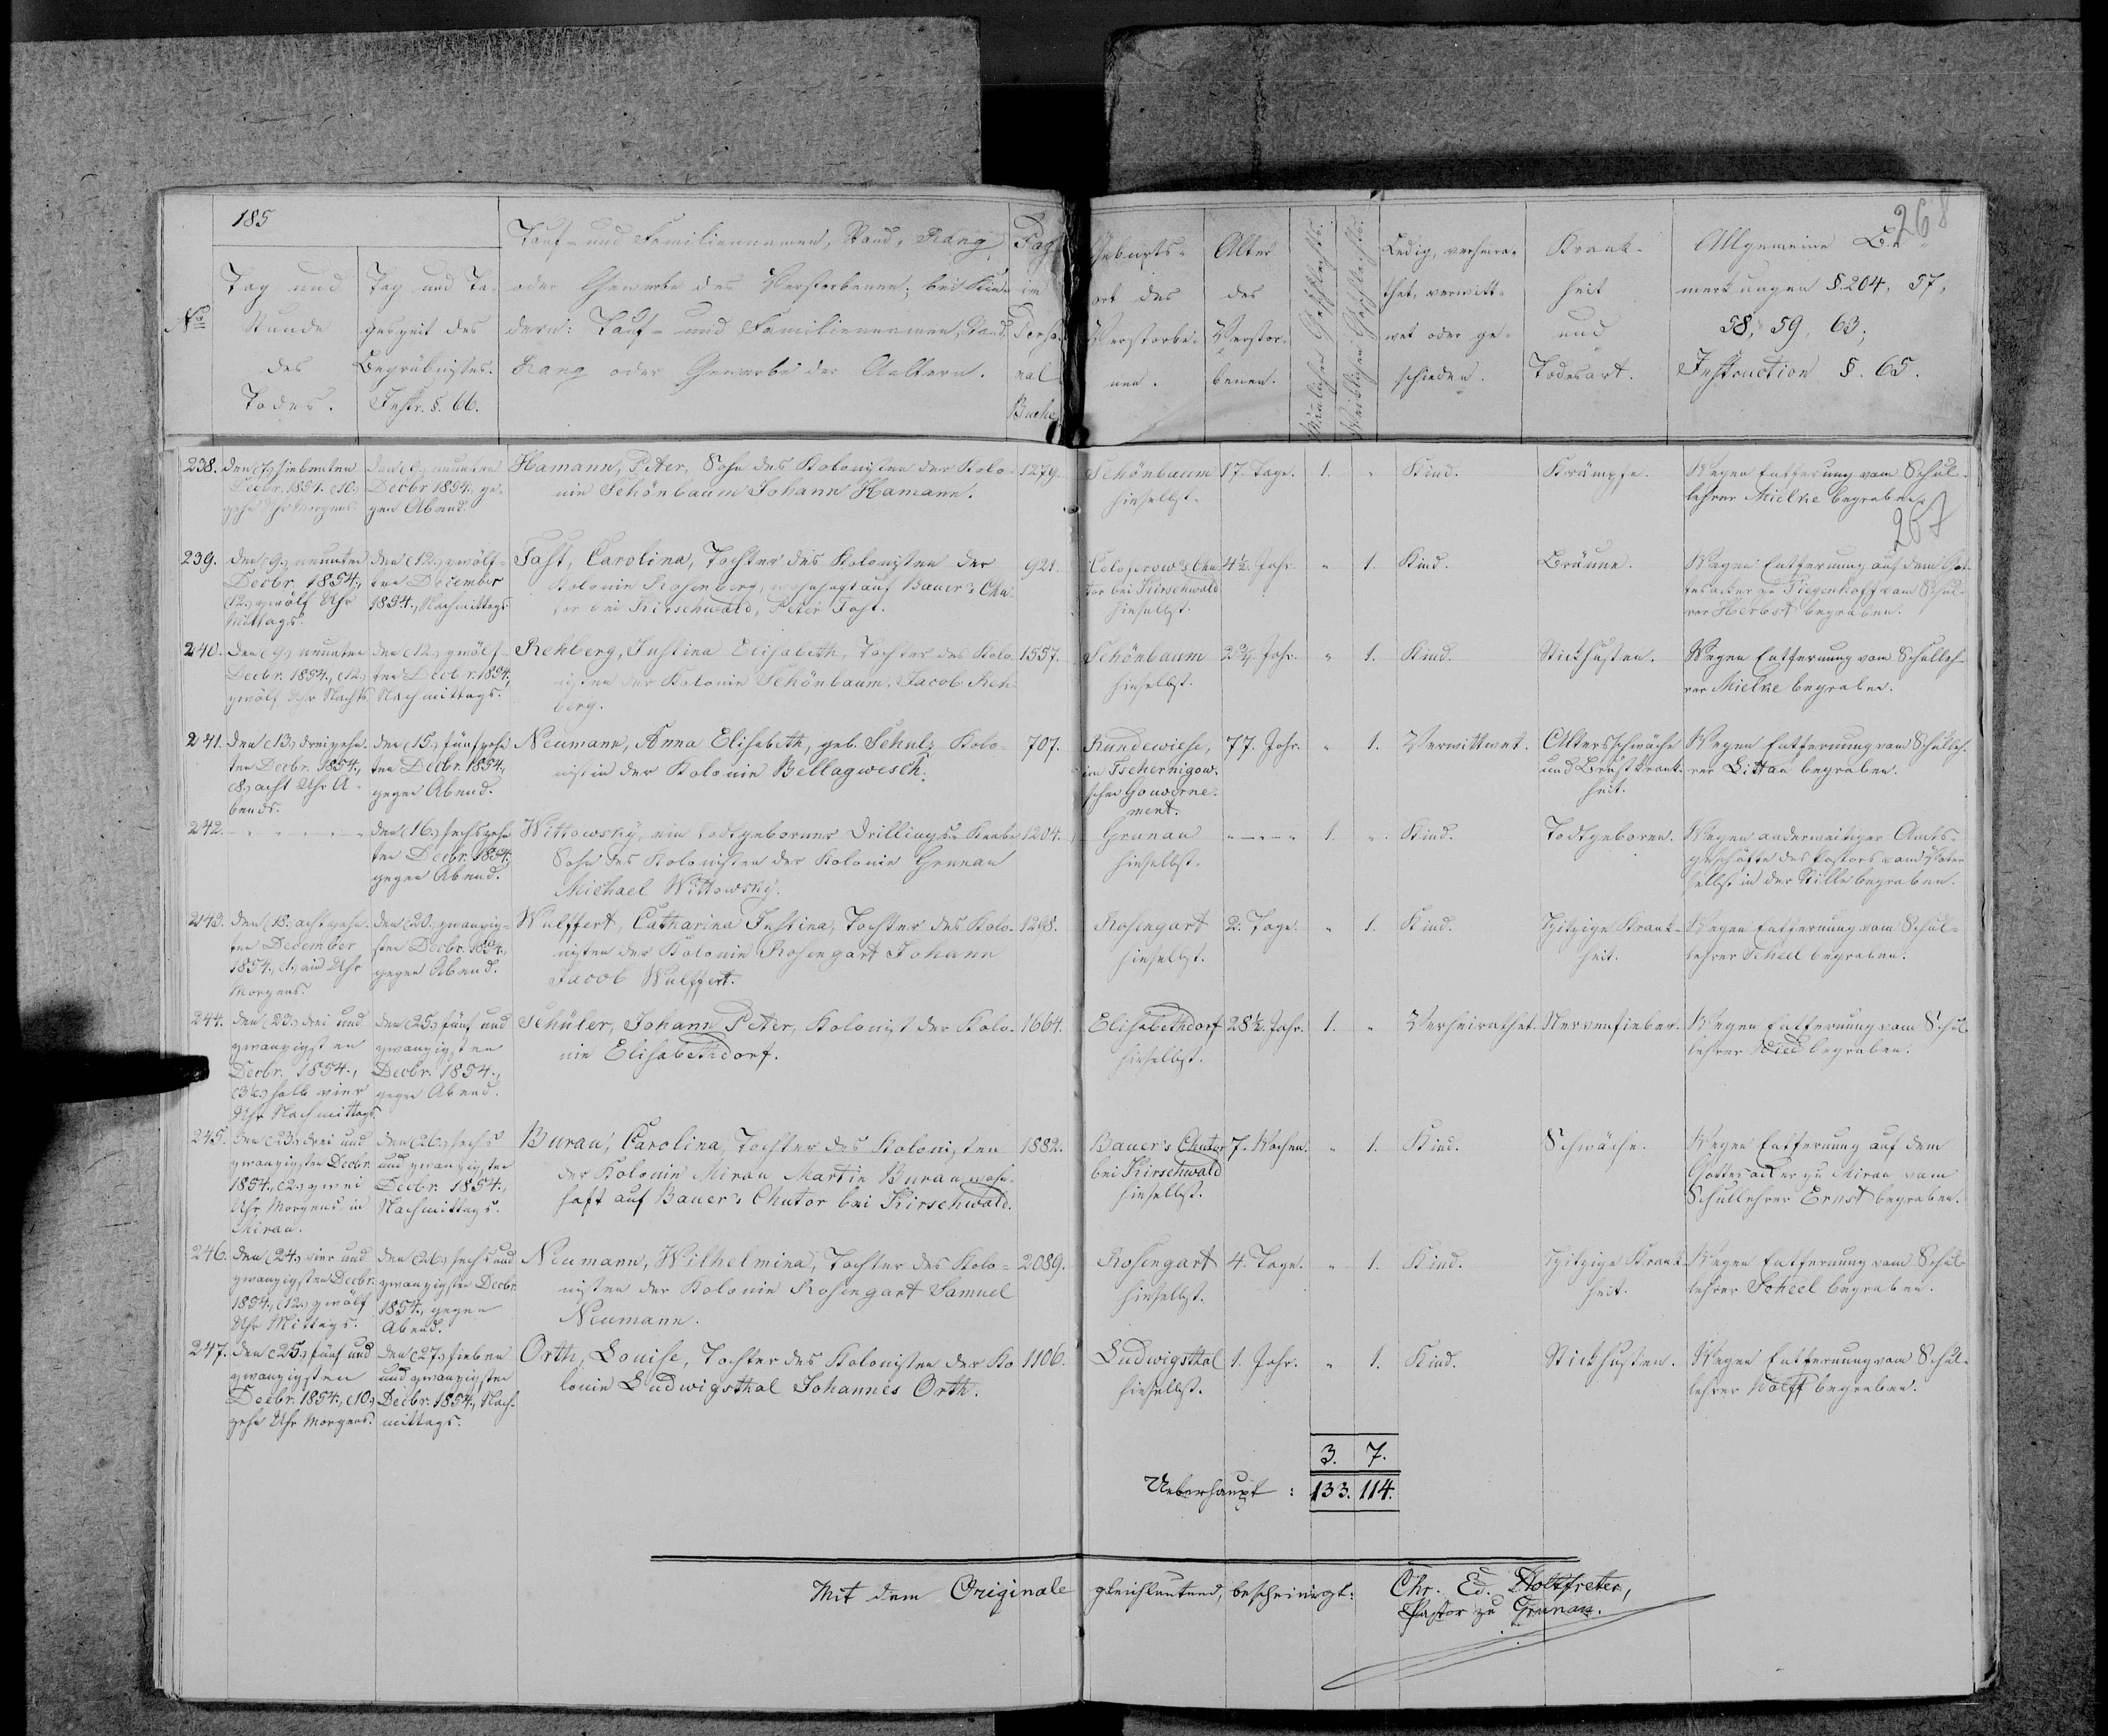 185
268
Nº
Tag und
Stunde
des
Todes.
Tag und Ta-
geszeit des
Begräbnisses.
Instr. §. 66.
Tauf- und Familiennamen, Stand, Rang
oder Gewerbe des Verstorbenen; bei Kin-
dern: Tauf- und Familiennamen, Stand,
Rang oder Gewerbe der Aeltern.
Pag
im
Perso-
nal
Buche
Geburts-
ort des
Verstorbe-
nen.
Alter
des
Verstor-
benen.
Männlichen Geschlechts.
Weiblichen Geschlechts.
Ledig, verheira-
thet, verwitt-
wet oder ge-
schieden.
Krank-
heit
und
Todesart.
Allgemeine Be-
merkungen §. 204, 57,
58, 59, 63;
Instruction §. 65.
238. den (7) siebenten
Decbr. 1854. (10.)
zehn Uhr Morgens.
den (9.) neunten
Decbr 1854., ge-
gen Abend.
Hamann, Peter, Sohn des Kolonisten der Kolo-
nie Schönbaum Johann Hamann.
1279.
Schönbaum
hieselbst.
17. Tage. 1. " Kind. Krämpfe.
Wegen Entfernung vom Schul-
lehrer Mielke begraben.
267
239. den (9.) neunten
Decbr. 1854.,
(12.) zwölf Uhr
Mittags.
den (12.) zwölf-
ten December
1854., Nachmittags
Fast, Carolina, Tochter des Kolonisten der
Kolonie Rosenberg, wohnhaft auf Bauer's Chu-
tor bei Kirschwald, Peter Fast.
921.
Chu-
tor bei Kirschwald
hieselbst.
4½. Jahr. " 1. Kind. Bräune.
Wegen Entfernung auf dem Got-
tesacker zu Tiegenhoff vom Schul-
rer Herbst begraben.
240. den (9.) neunten
Decbr. 1854., (12.)
zwölf Uhr Nachts
den (12.) zwölf-
ten Decbr. 1854.,
Nachmittags.
Rehberg, Justina Elisabeth, Tochter des Kolo-
nisten der Kolonie Schönbaum, Jacob Reh-
berg.
1557.
Schönbaum
hieselbst.
2¾. Jahr. " 1. Kind. Stickhusten.
Wegen Entfernung vom Schulleh-
rer Mielke begraben.
241. den (13.) dreizehn-
ten Decbr. 1854.,
(8.) acht Uhr A-
bends.
den (15.) fünfzehn
ten Decbr. 1854.,
gegen Abend.
Neumann, Anna Elisabeth, geb. Schulz, Kolo-
nistin der Kolonie Bellagwesch.
707.
Rundewiese,
im Tschernigow-
schen Gouverne-
ment.
77. Jahr. " 1. Verwittwet.
Altersschwäche
und Brustkrank-
heit.
Wegen Entfernung vom Schulleh-
rer Littau begraben.
242. " " " " "
den (16.) sechszehn
ten Decbr. 1854.,
gegen Abend.
Wittowsky, ein todtgeborner Drillings-Knabe
Sohn des Kolonisten der Kolonie Grunau
Michael Wittowsky.
1204.
Grunau
hieselbst.
" — " — " 1. " Kind. Todtgeboren.
Wegen anderweitiger Amts-
geschäfte des Pastors vom Vater
selbst in der Stille begraben.
243. den (18.) achtzehn-
ten December
1854., (1.) ein Uhr
Morgens.
den (20.) zwanzig-
sten Decbr. 1854.,
gegen Abend.
Wulffert, Catharina Justina, Tochter des Kolo-
nisten der Kolonie Rosengart Johann
Jacob Wulffert.
1298.
Rosengart
hieselbst.
2. Tage. " 1. Kind.
Hitzige Krank-
heit.
Wegen Entfernung vom Schul-
lehrer Scheel begraben.
244. den (23.) drei und
zwanzigsten
Decbr. 1854.,
(3½.) halb vier
Uhr Nachmittags
den (25.) fünf und
zwanzigsten
Decbr. 1854.,
gegen Abend.
Schüler, Johann Peter, Kolonist der Kolo-
nie Elisabethdorf.
1664.
Elisabethdorf
hieselbst.
28½. Jahr. 1. " Verheirathet. Nervenfieber.
Wegen Entfernung vom Schul-
lehrer begraben.
245. den (23.) drei und
zwanzigsten Decbr.
1854., (2.) zwei
Uhr Morgens in
Mirau.
den (26.) sechs
und zwanzigsten
Decbr. 1854.,
Nachmittags.
Burau, Carolina, Tochter des Kolonisten
der Kolonie Mirau Martin Burau, wohn-
haft auf Bauer's Chutor bei Kirschwald.
1882.
Bauer's Chutor
bei Kirschwald
hieselbst.
7. Wochen. " 1. Kind. Schwäche.
Wegen Entfernung auf dem
Gottesacker zu Mirau vom
Schullehrer Ernst begraben.
246. den (24.) vier und
zwanzigsten Decbr.
1854., (12.) zwölf
Uhr Mittags.
den (26.) sechs und
zwanzigsten Decbr.
1854., gegen
Abend.
Neumann, Wilhelmina, Tochter des Kolo-
nisten der Kolonie Rosengart Samuel
Neumann.
2089.
Rosengart
hieselbst.
4. Tage. " 1. Kind.
Hitzige Krank-
heit.
Wegen Entfernung vom Schul-
lehrer Scheel begraben.
247. den (25.) fünf und
zwanzigsten
Decbr. 1854., (10.)
zehn Uhr Morgens.
den (27.) sieben
und zwanzigsten
Decbr. 1854., Nach-
mittags.
Orth, Louise, Tochter des Kolonisten der Ko-
lonie Ludwigsthal Johannes Orth.
1106.
Ludwigsthal
hieselbst.
1. Jahr. " 1. Kind. Stickhusten.
Wegen Entfernung vom Schul-
lehrer Wolff begraben.
3. 7.
Ueberhaupt : 133. 114.
Mit dem Originale gleichlautend, bescheinigt: Chr. Ed. Holtfreter,
Pastor zu Grunau.